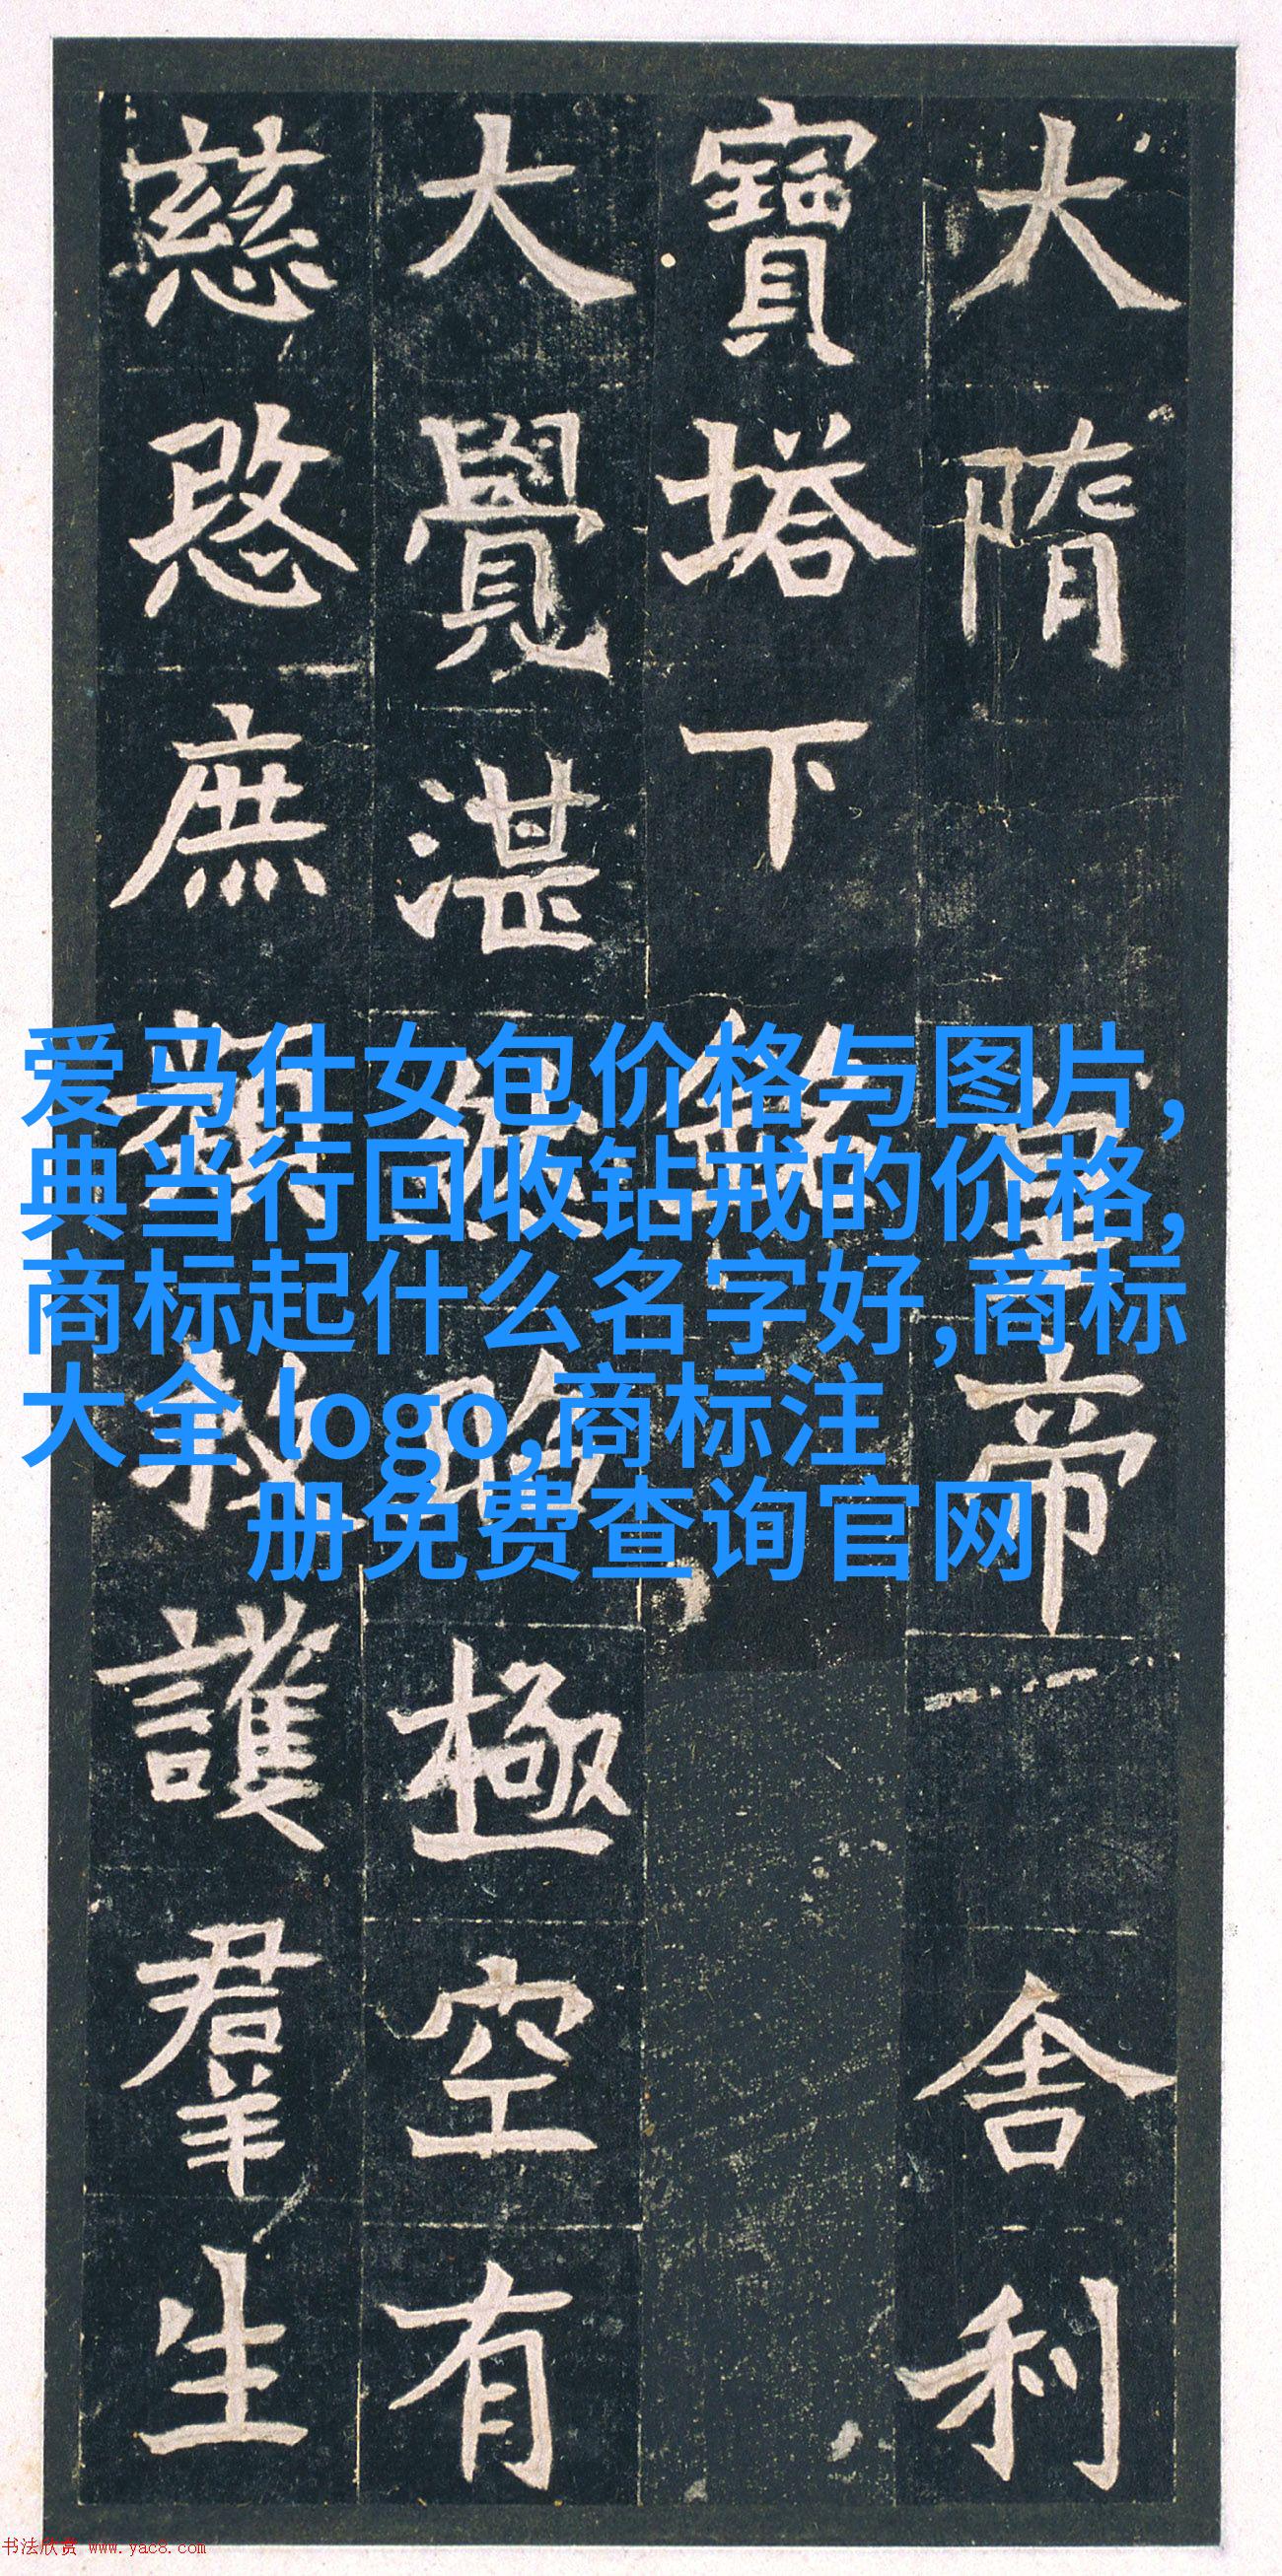 大隋皇帝舍利
寶塔下銘
大覺湛然昭極空有
慈愍庶類救護羣生
爱马仕女包价格与图片,
典当行回收钻戒的价格,
商标起什么名字好,商标
大全 logo,商标注
册免费查询官网
书法欣赏 www.yac8.com